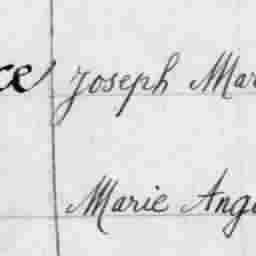 ce Joseph Mar
Marie Ang